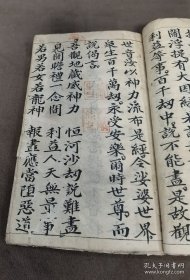 浮提有大因
利益等事 千劫中說不能盡是故觀
世音汝以神力流布是經令娑婆世界
眾生百千萬劫永受安樂爾時世尊而
說偈言
吾觀地藏威神力 恒河沙劫說難盡
見聞瞻禮一念間 利益人天無量事
若男若女若龍神 報盡應當墮惡道